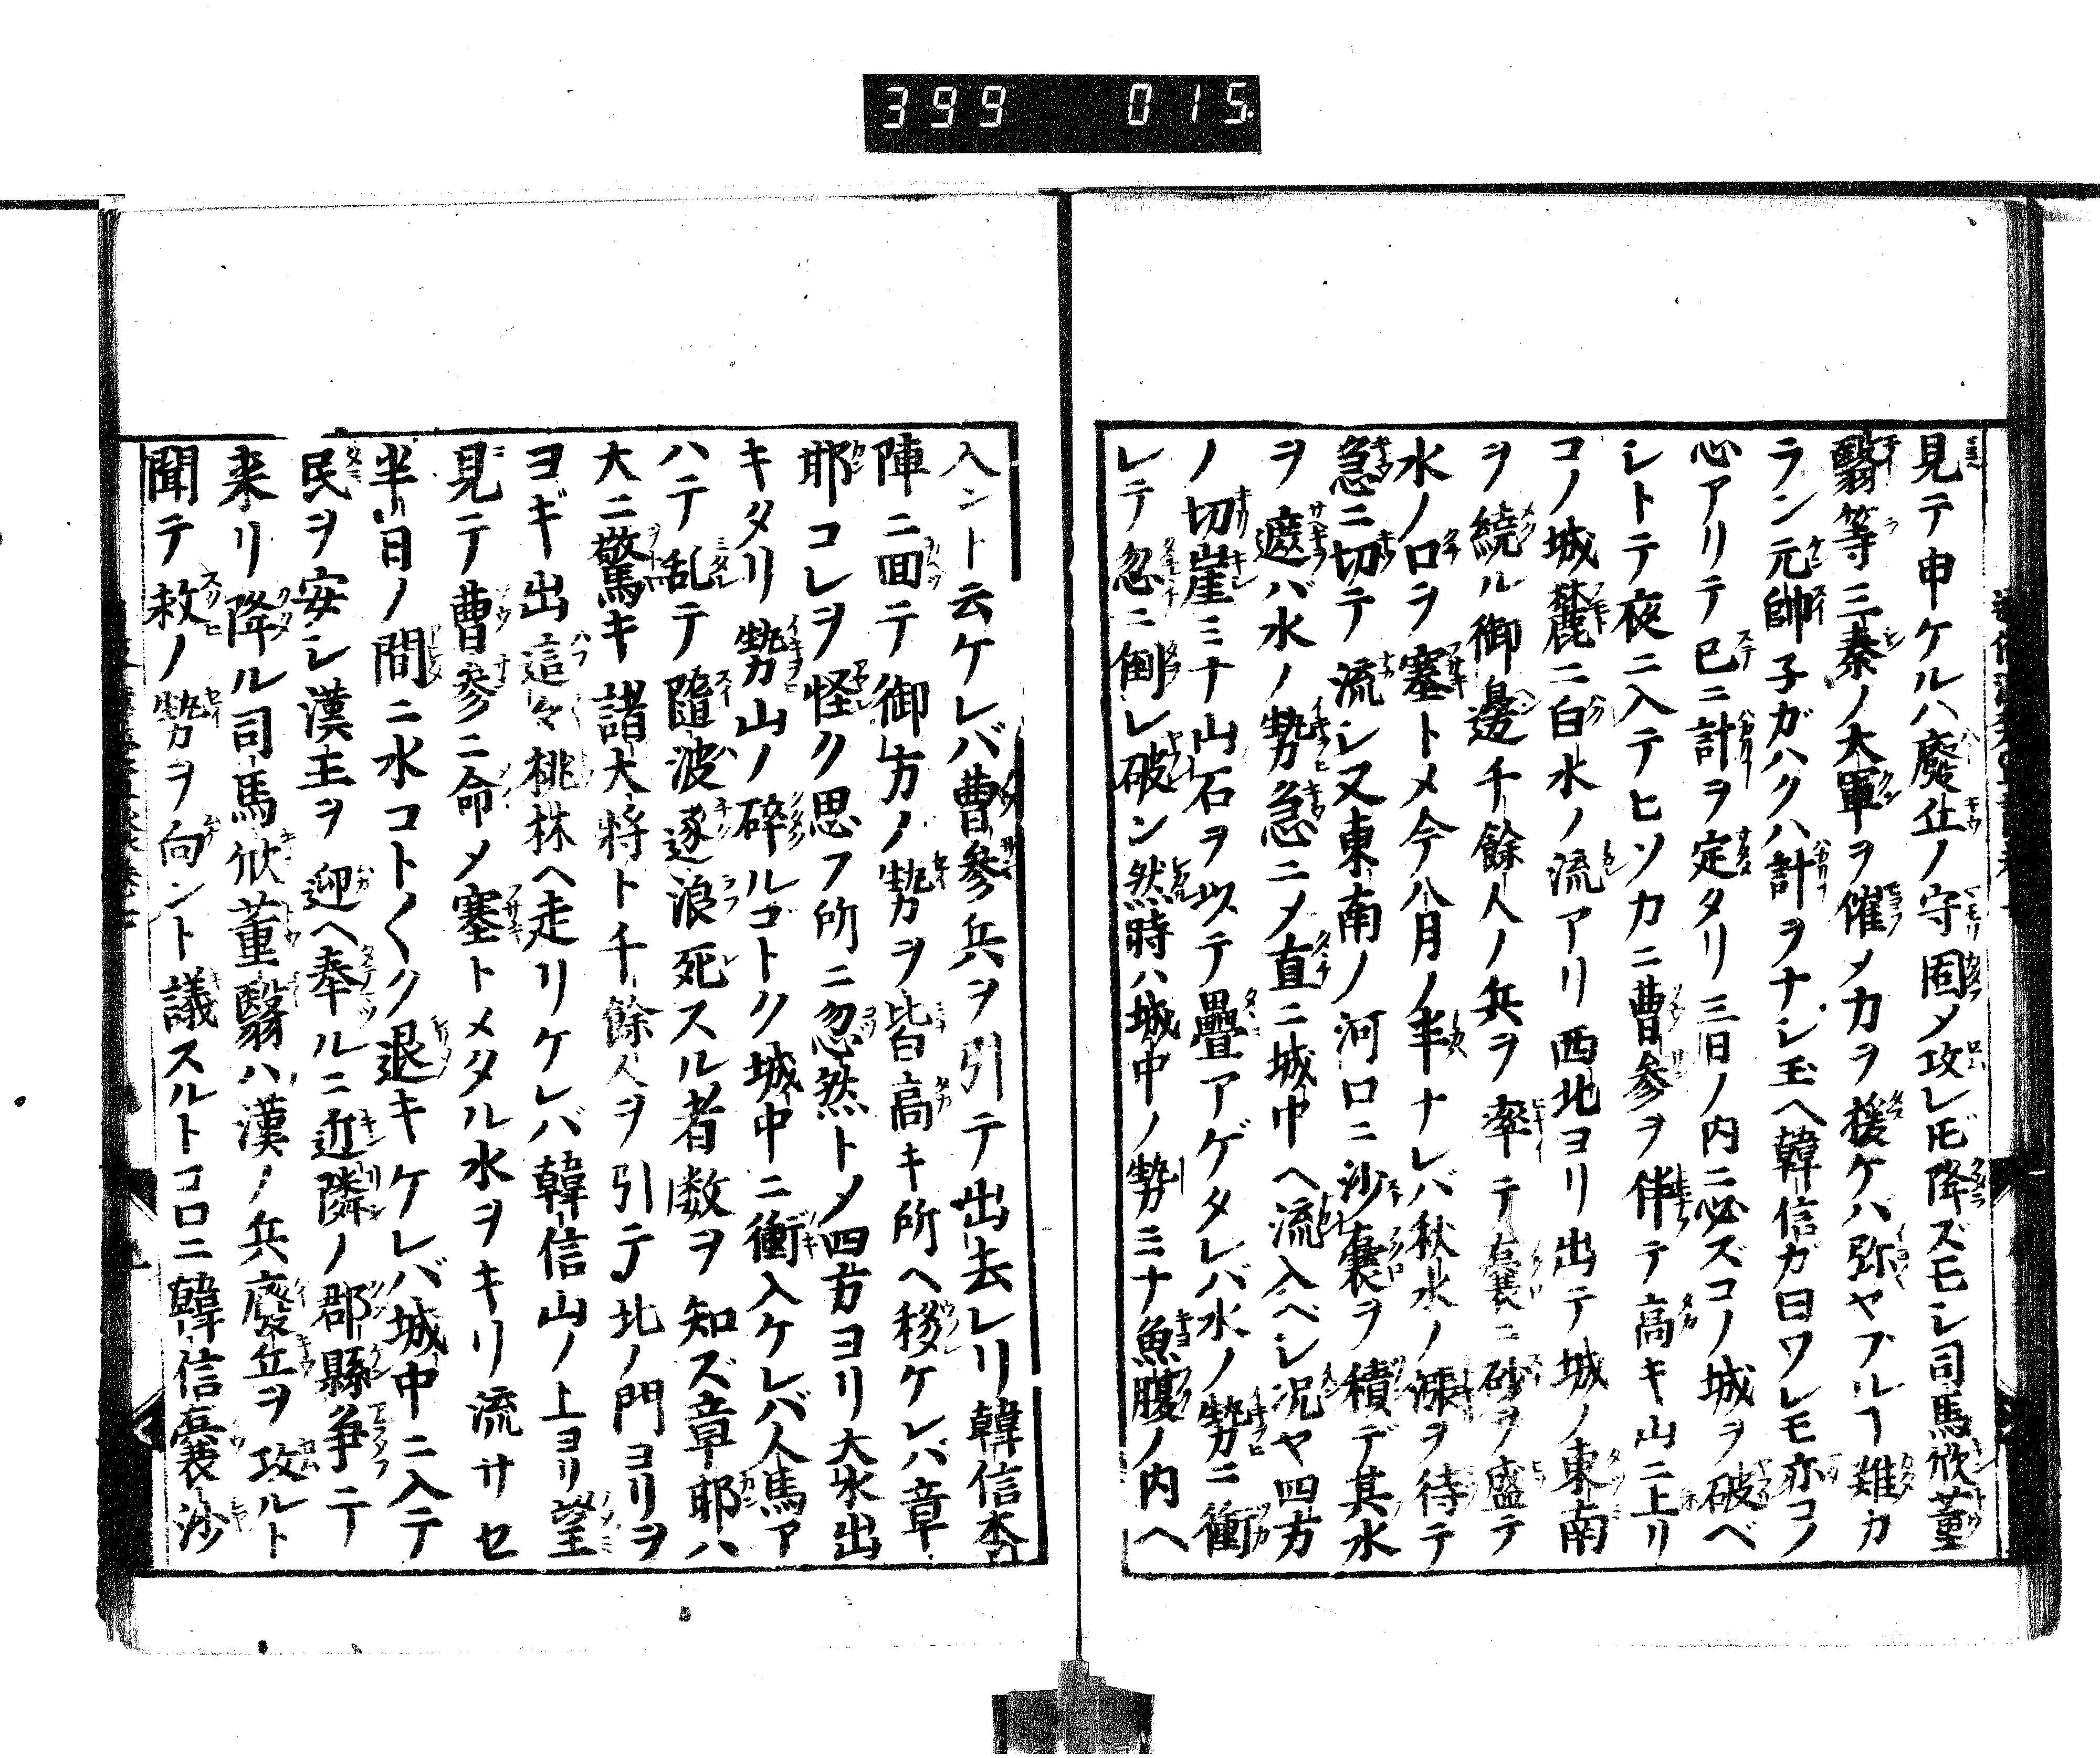 399 015
見テ申ケルハ廢丘ノ守固メ攻レ𪜈降ズモシ司馬欣董
翳等三秦ノ大軍ヲ催メ力ヲ援ケハ弥ヤブルヿ難カ
ラン元帥子ガハクハ計ヲナシ玉ヘ韓信ガ曰ワレモ亦コノ
心アリテ已ニ計ヲ定タリ三日ノ内ニ必ズコノ城ヲ破ベ
シトテ夜ニ入テヒソカニ曹参ヲ伴テ高キ山ニ上リ
コノ城麓ニ白水ノ流アリ西北ヨリ出テ城ノ東南
ヲ繞ル御邊千餘人ノ兵ヲ率テ嚢ニ砂ヲ盛テ
水ノ口ヲ塞トメ今八月ノ半ナレバ秋水ノ漲ヲ待テ
急ニ切テ流シ又東南ノ河口ニ沙嚢ヲ積デ其水
ヲ遮バ水ノ勢急ニメ直ニ城中ヘ流入ベシ況ヤ四方
ノ切崖ミナ山石ヲ以テ疊アゲタレバ水ノ勢ニ衝
レテ忽ニ倒レ破ン然時ハ城中ノ勢ミナ魚腹ノ内ヘ
入ント云ケレバ曹參兵ヲ引テ出去レリ韓信本
陣ニ回テ御方ノ勢ヲ皆高キ所ヘ移ケレバ章
耶コレヲ怪ク思フ所ニ忽然トメ四方ヨリ大水出
キタリ勢山ノ碎ルコトク城中ニ衝入ケレバ人馬ア
ハテ乱テ隨波逐浪死スル者数ヲ知ズ章耶ハ
大ニ驚キ諸大将ト千餘人ヲ引テ北ノ門ヨリヲ
ヨギ出這々桃林ヘ走リケレバ韓信山ノ上ヨリ望
見テ曹参ニ命メ塞トメタル水ヲキリ流サセ
半日ノ間ニ水コト〱ク退キケレバ城中ニ入テ
民ヲ安シ漢王ヲ迎ヘ奉ルニ近隣ノ郡縣争テ
来リ降ル司馬欣董翳ハ漢ノ兵廢丘ヲ攻ルト
聞テ救ノ勢ヲ向ント議スルトコロニ韓信嚢沙